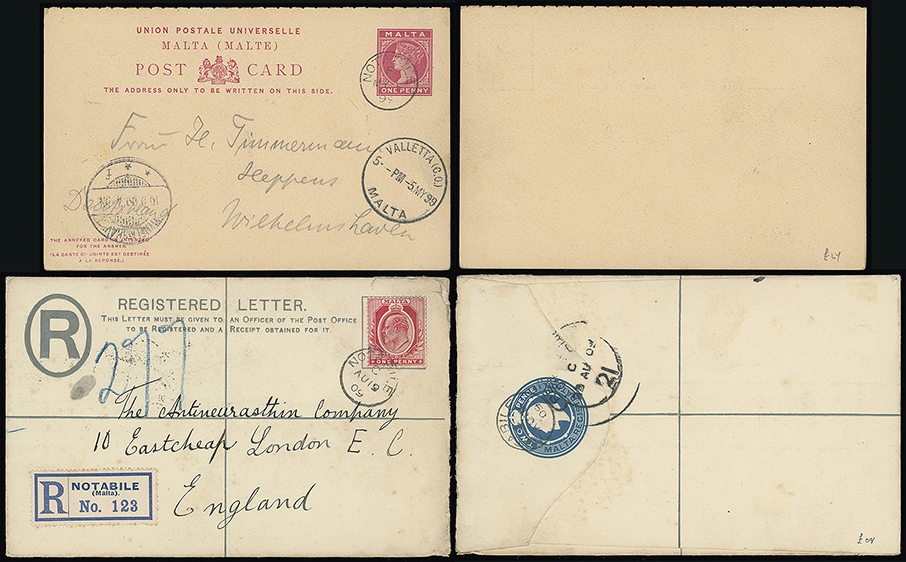 UNION POSTALE UNIVERSELLE
MALTA (MALTE)
POST CARD
THE ADDRESS ONLY TO BE WRITTEN ON THIS SIDE.
MALTA
ONE PENNY
Timmermann
Heppens
Wilhelmshaven
VALLETTA (G.O)
5 -PM-5MY99
MALTA
THE ANNEXED CARD IS INTENDED
FOR THE ANSWER
(LA CARTE CI-JOINTE EST DESTINÉE
À LA RÉPONSE.)
R
REGISTERED LETTER.
THIS LETTER MUST BE GIVEN TO AN OFFICER OF THE POST OFFICE
TO BE REGISTERED AND A RECEIPT OBTAINED FOR IT.
MALTA
ONE PENNY
The Antineurasthin Company
10 Eastcheap London E. C.
England
R
NOTABILE
(Malta).
No. 123
AU 09
21
MALTA REGIS
TWO PENCE